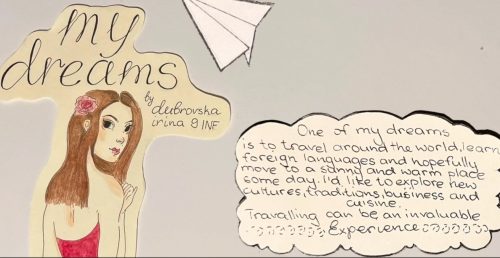 my
dreams
by dubrovska
irina 9 INF
One of my dreams
is to travel around the world, learn
foreign languages and hopefully
move to a sunny and warm place
some day. I'd like to explore new
cultures, traditions, business and
cuisine.
Travalling can be an invaluable
Experience